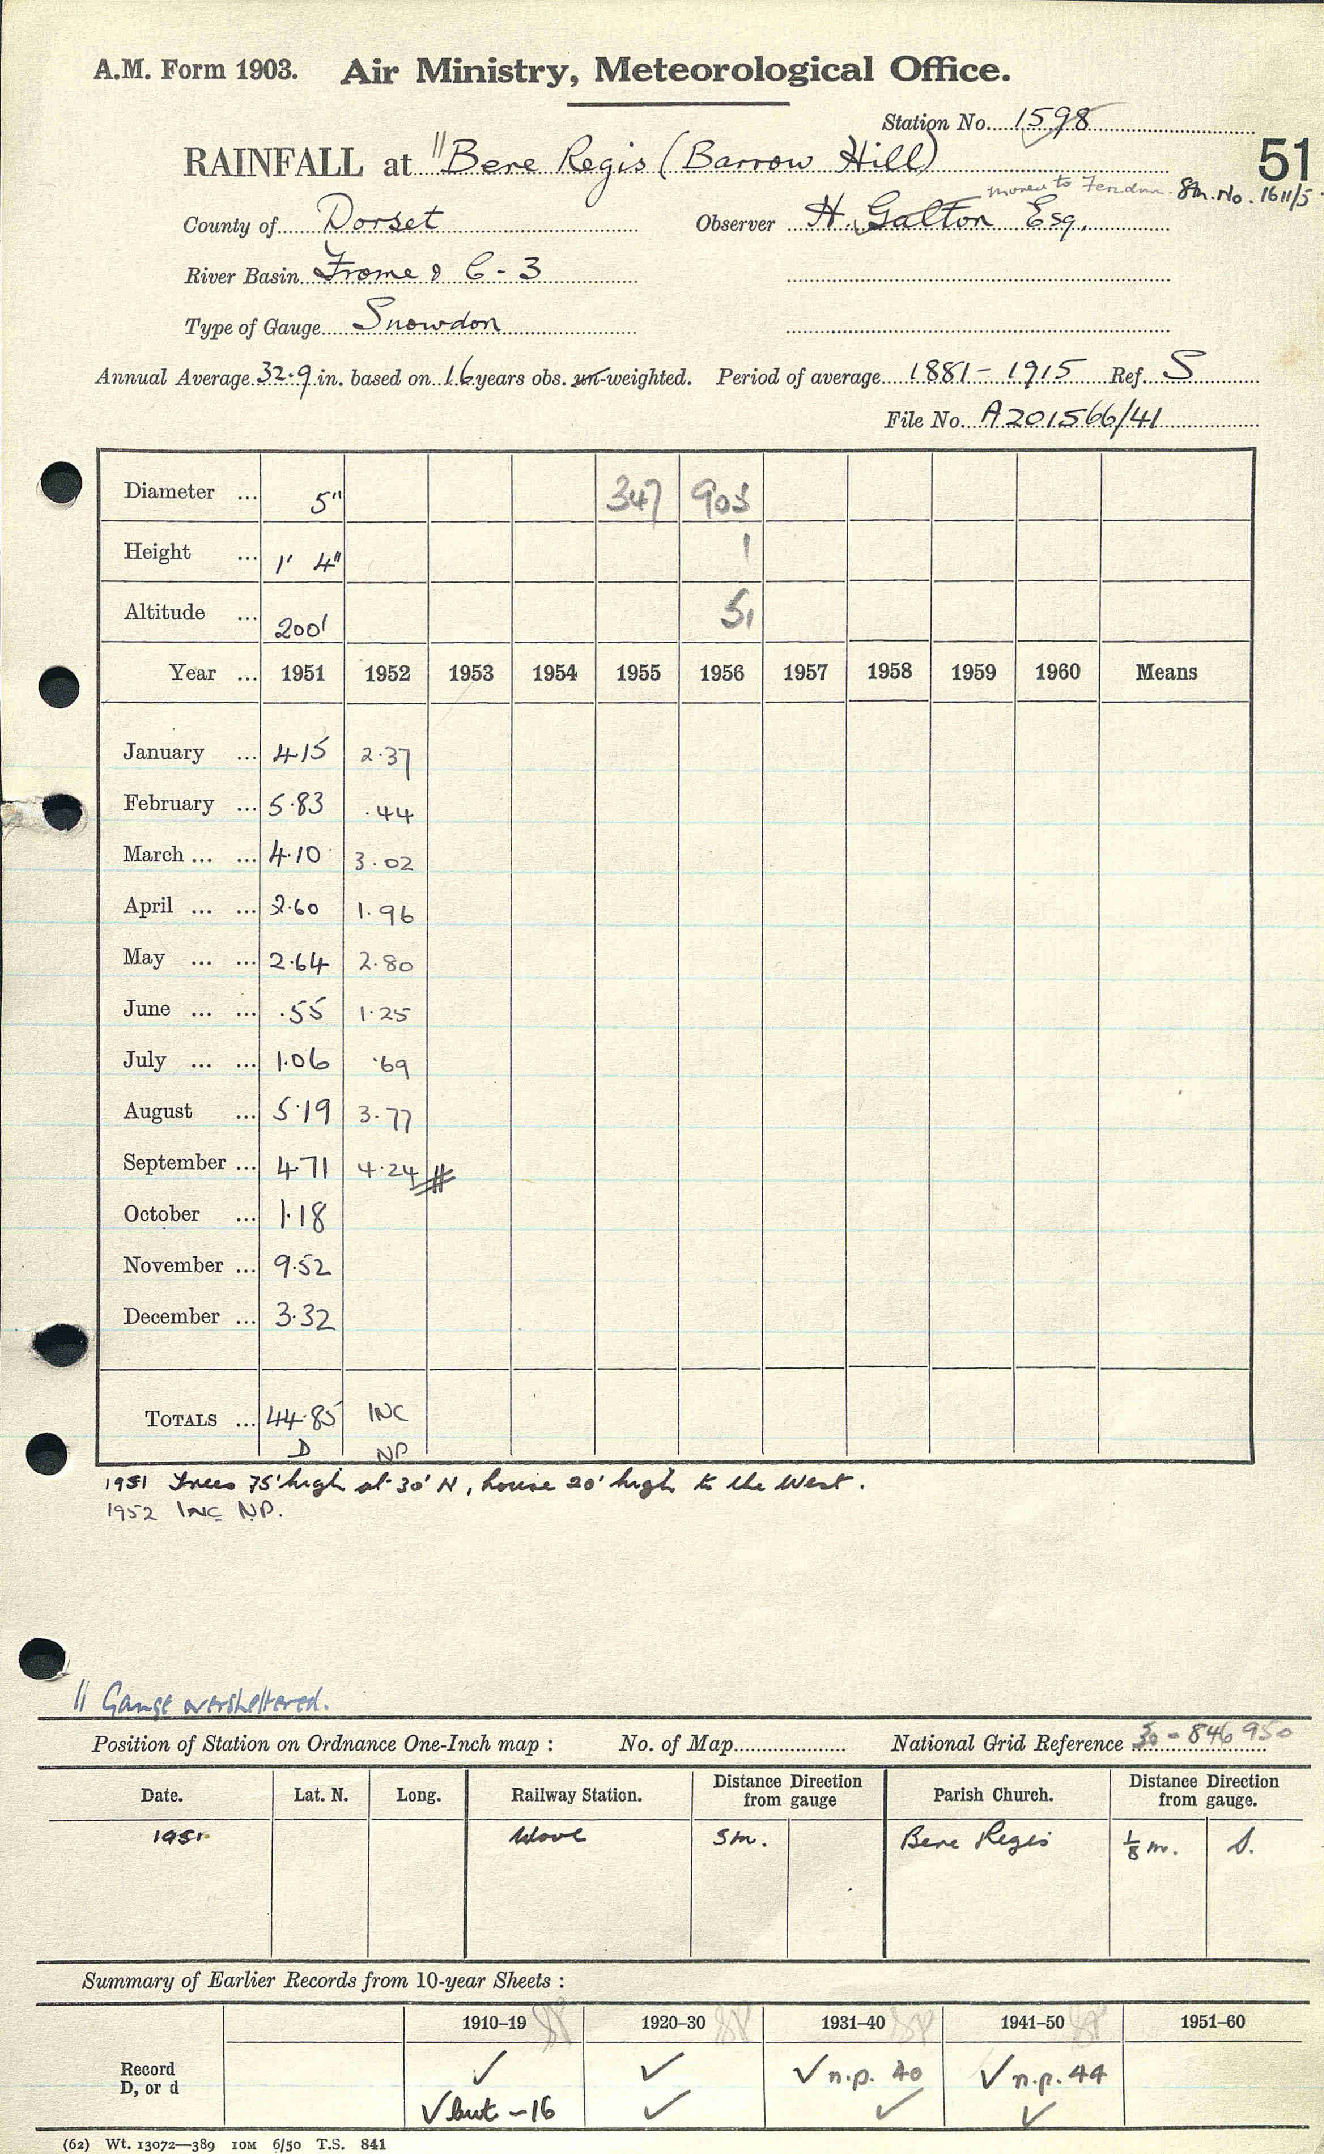 A.M. Form 1903. Air Ministry, Meteorological Office.
Station No. 1598
RAINFALL at "Bere Regis (Barrow Hill)
51
moved to Stn. No. 1611/5
County of Dorset Observer H. Galton Esq.
River Basin Frome 8 C-3
Type of Gauge Snowdon
Annual Average 32.9 in. based on 16 years obs. un-weighted. Period of average 1881-1915 Ref. S
File No. A201566/41
Diameter ... 5" 347 903
Height ... 1' 4" 1
Altitude ... 200' 51
Year ... 1951 1952 1953 1954 1955 1956 1957 1958 1959 1960 Means
January ... 4.15 2.37
February ... 5.83 .44
March ... ... 4.10 3.02
April ... ... 2.60 1.96
May ... ... 2.64 2.80
June ... ... .55 1.25
July ... ... 1.06 .69
August ... 5.19 3.77
September ... 4.71 4.24 #
October ... 1.18
November ... 9.52
December ... 3.32
TOTALS ... 44.85 INC
D NP
1951 Trees 75' high at 30' N, house 20' high to the West.
1952 INC NP.
|| Gauge oversheltered.
Position of Station on Ordnance One-Inch map : No. of Map National Grid Reference 30 - 846 950
Date. Lat. N. Long. Railway Station. Distance Direction from gauge Parish Church. Distance Direction from gauge.
1951 Wool 5m. Bere Regis 1/8 m. S.
Summary of Earlier Records from 10-year Sheets :
1910–19 1920–30 1931–40 1941–50 1951–60
Record ✓ ✓ ✓ n.p. 40 ✓ n.p. 44
D, or d ✓ but -16 ✓ ✓ ✓
(62) Wt. 13072—389 10M 6/50 T.S. 841